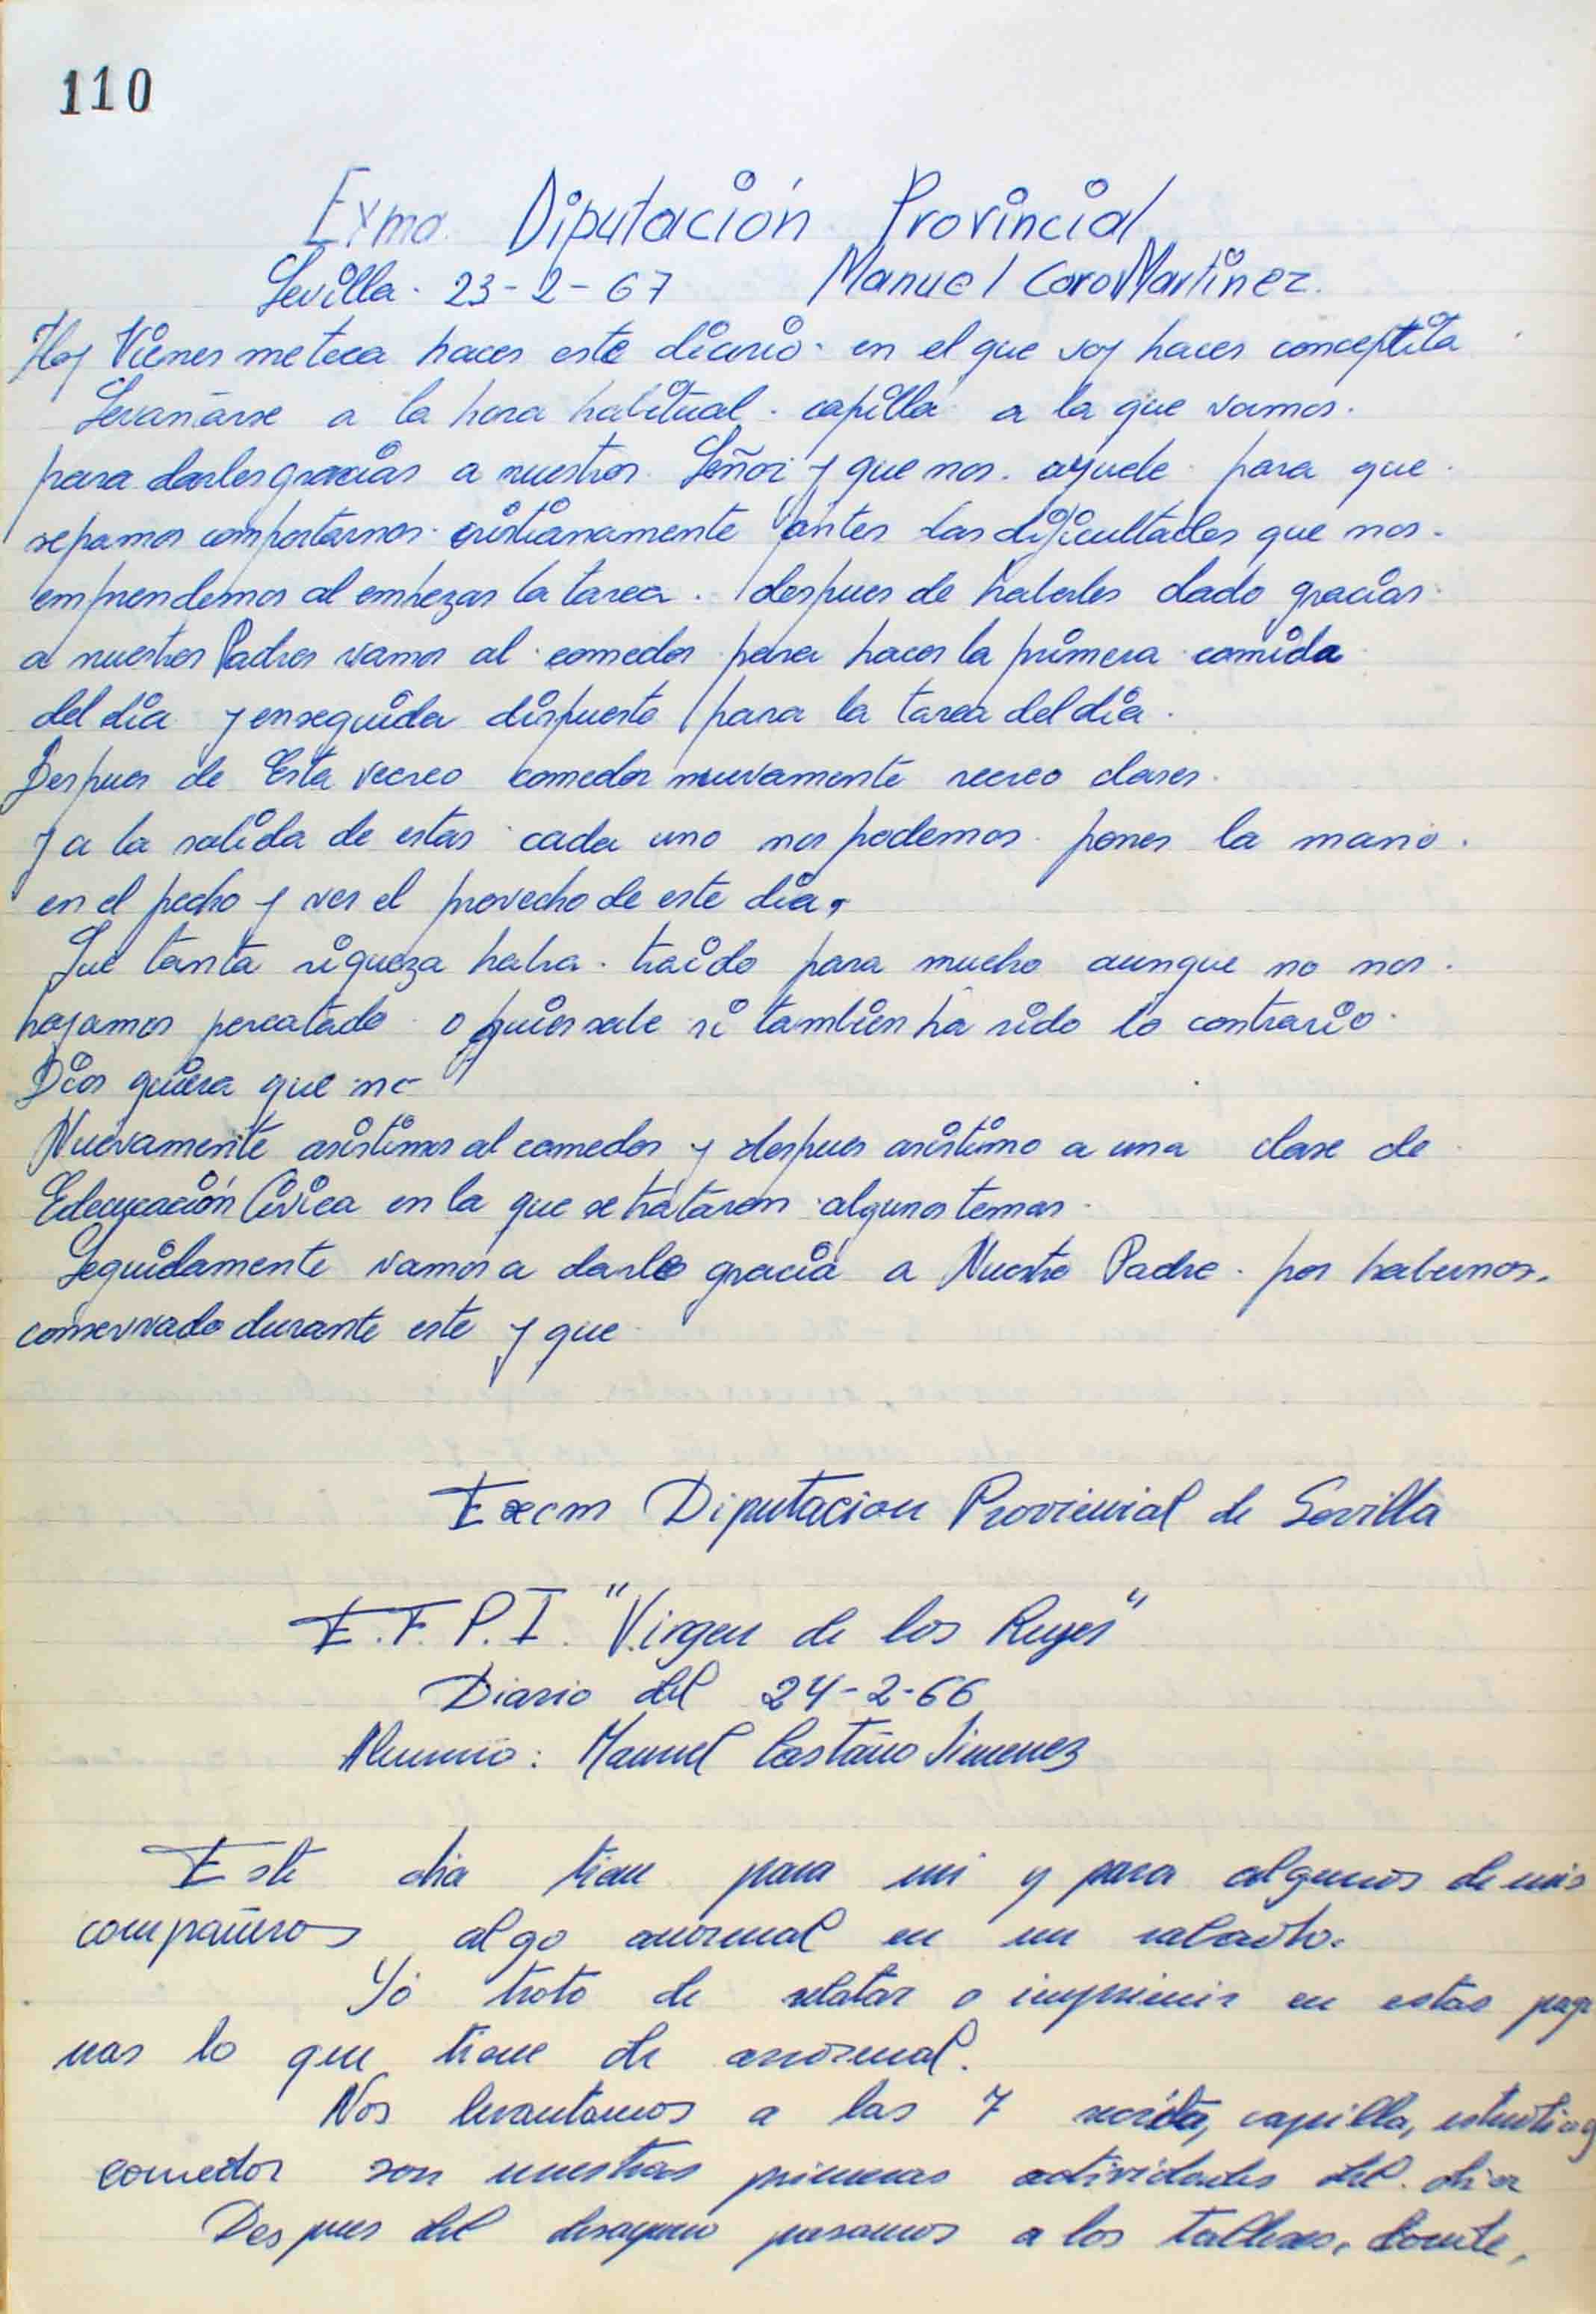 110
Exma. Diputación Provincial
Sevilla. 23-2-67 Manuel Caro Martinez.
Hoy Vienes me toca hacer este diario. en el que voy hacer
a la hora habitual. capilla a la que vamos.
para darles gracias a nuestros Señor y que nos. ayude para que
sepamos comportarnos cristianamente antes las dificultades que nos.
emprendemos al empezar la tarea. despues de haberles dado gracias
a nuestros Padres vamos al comedor para hacer la primera comida
del dia y enseguida dispuesto para la tarea del dia.
Despues de Esta recreo comedor nuevamente recreo clases.
y a la salida de estas cada uno nos podemos poner la mano.
en el pecho y ver el provecho de este dia,
Que tanta riqueza habra. traido para mucho aunque no nos.
hayamos percatado o quien sabe si tambien ha sido lo contrario.
Dios quiera que no
Nuevamente asistimos al comedor y despues asistimo a una clase de
Civica en la que se trataron algunos temas.
Seguidamente vamos a darle gracia a Nuestro Padre. por habernos.
conservado durante este y que
Excm Diputacion Provincial de Sevilla
E.F.P.I. "Virgen de los Reyes"
Diario del 24-2-66
Alumno: Manuel Castaño Jimenez
Este dia tiene para mi y para algunos de mis
compañeros algo anormal en un
Yo trato de relatar o imprimir en estas pagi
nas lo que tiene de anormal.
Nos levantamos a las 7 capilla, estudio y
comedor son nuestras primeras actividades del. dia
Despues del desayuno pasamos a los talleres, donde,